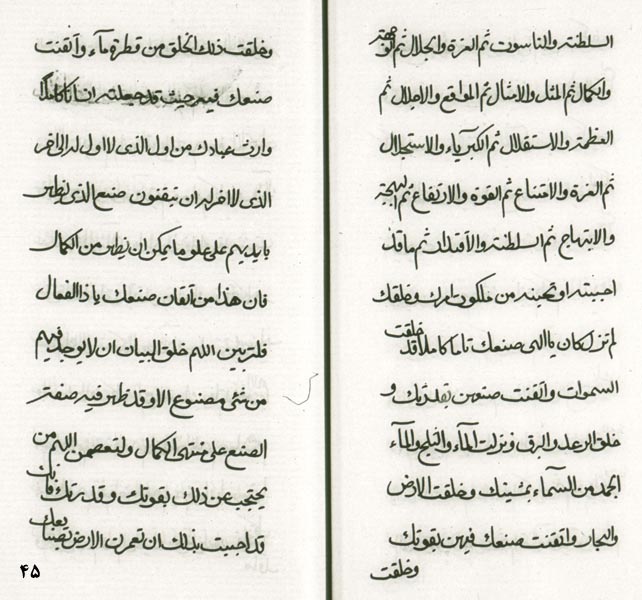 السلطنة والناسوت ثم العزة والجلال ثم الوجهة
والكمال ثم المثل والامثال ثم المواقع والاجلال ثم
العظمة والاستقلال ثم الكبرياء والاستجلال
ثم العزة والامتناع ثم القوة والارتفاع ثم البهجة
والابتهاج ثم السلطنة والاقتدار ثم ماقد
احببته او تحبنه من ملكوت امرك وخلقك
لم تزل كان ياالهى صنعك تاما كاملا قد خلقت
السموات واتقنت صنعهن بقدرتك و
خلق الرعد والبرق ونزلت الماء والثلج والماء
الجمد من السماء بمشيتك وخلقت الارض
والبحار واتقنت صنعك فيهن بقوتك
وخلقت
وخلقت ذلك الخلق من قطرة ماء واتقنت
صنعك فيه حيث قد جعلته انسانا كاملا
وارث عبادك من اول الذى لا اول له الى اخر
الذى لا اخر له ان تتقنون صنع الذى يظهر
بايديهم على علو ما يمكن ان يظهر من الكمال
فان هذا من اتقان صنعك ياذا الفعال
فلتربين اللهم خلق البيان ان لا يوجد فيهم
من شئ مصنوع الا وقد ظهر فيه صفة
الصنع على منتهى الكمال ولتعصمن اللهم من
يحتجب عن ذلك بقوتك وقدرتك فانك
قد احببت بذلك ان تعمرت الارض بصنايعك
۴۵